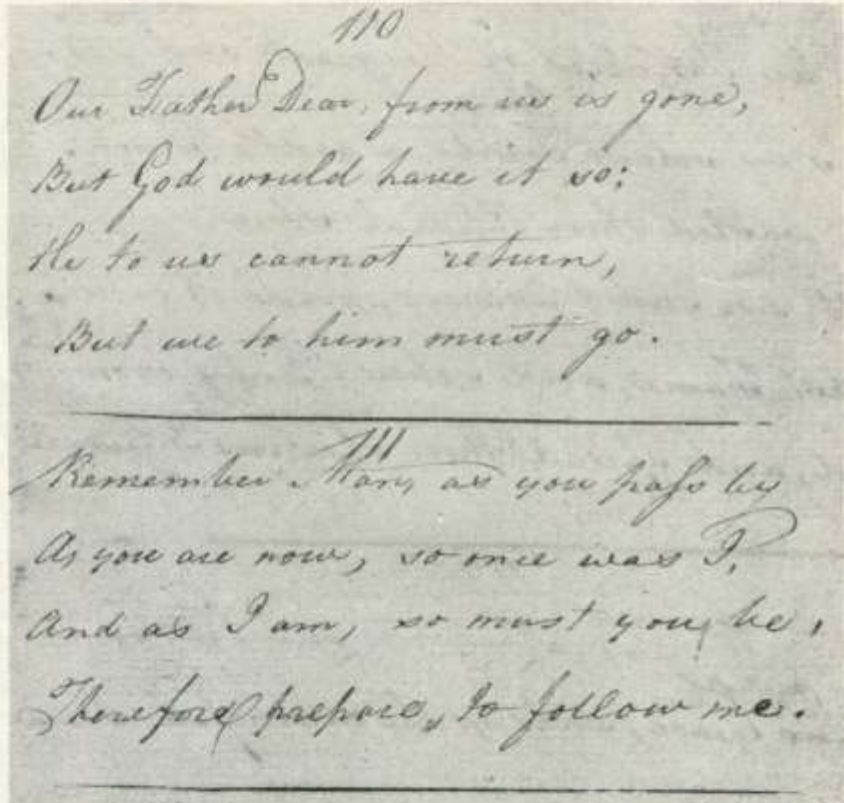 110
Our Father Dear, from us is gone,
But God would have it so;
He to us cannot return,
But we to him must go.
111
Remember Man, as you paſs by
As you are now, so once was I,
And as I am, so must you be,
Therefore prepare, to follow me.